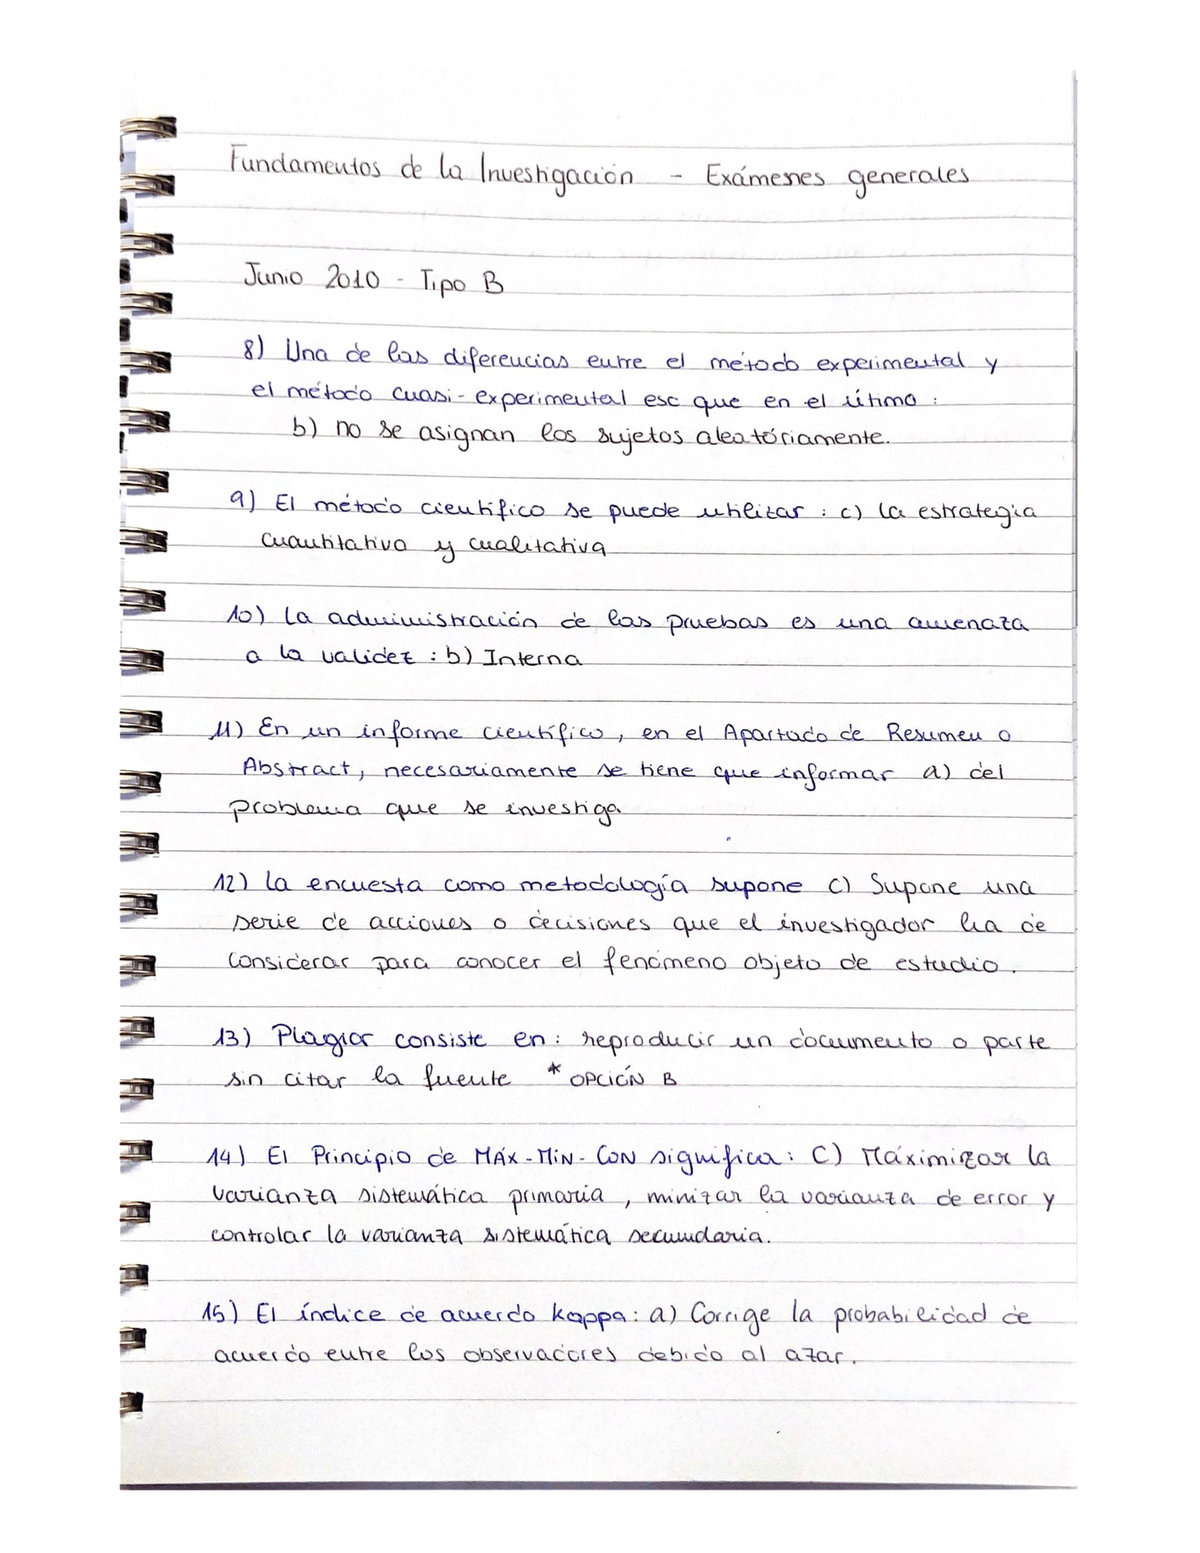 Fundamentos de la Investigación - Exámenes generales
Junio 2010 - Tipo B
8) Una de las diferencias entre el método experimental y
el método cuasi-experimental esc que en el útimo :
b) no se asignan los sujetos aleatóriamente.
9) El método científico se puede utilizar : c) la estrategia
cuantitativa y cualitativa
10) la administración de las pruebas es una amenaza
a la validez : b) Interna
11) En un informe científico, en el Apartado de Resumen o
Abstract, necesariamente se tiene que informar a) del
problema que se investiga
12) la encuesta como metodología supone c) Supone una
serie de acciones o decisiones que el investigador ha de
considerar para conocer el fenómeno objeto de estudio.
13) Plagiar consiste en : reproducir un documento o parte
sin citar la fuente * OPCIÓN B
14) El Principio de MÁX-MIN-CON significa: C) Máximizar la
varianza sistemática primaria, minizar la varianza de error y
controlar la varianza sistemática secundaria.
15) El índice de acuerdo kappa: a) Corrige la probabilidad de
acuerdo entre los observadores debido al azar.